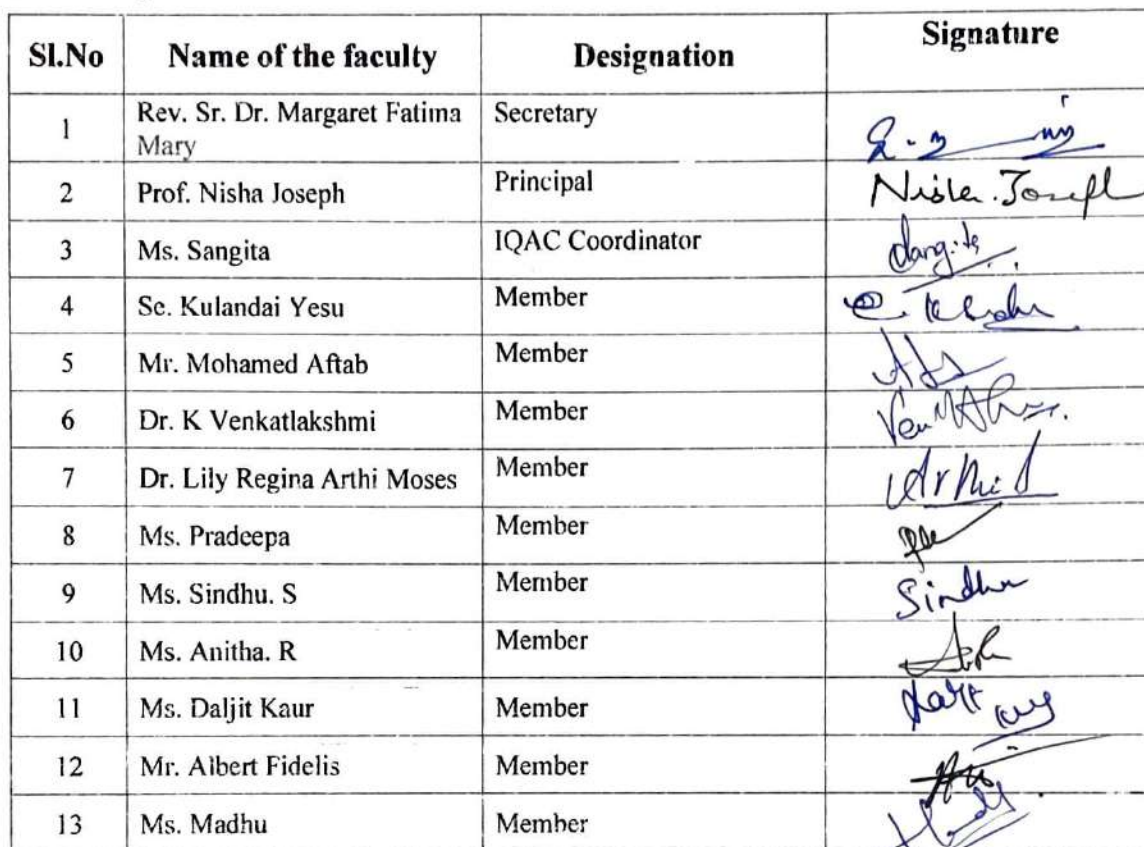 Sl.No Name of the faculty Designation Signature
1 Rev. Sr. Dr. Margaret Fatima Secretary
Mary
2 Prof. Nisha Joseph Principal Nisha. Joseph
3 Ms. Sangita IQAC Coordinator Sangita
4 Sc. Kulandai Yesu Member
5 Mr. Mohamed Aftab Member
6 Dr. K Venkatlakshmi Member
7 Dr. Lily Regina Arthi Moses Member
8 Ms. Pradeepa Member
9 Ms. Sindhu. S Member Sindhu
10 Ms. Anitha. R Member
11 Ms. Daljit Kaur Member
12 Mr. Albert Fidelis Member
13 Ms. Madhu Member